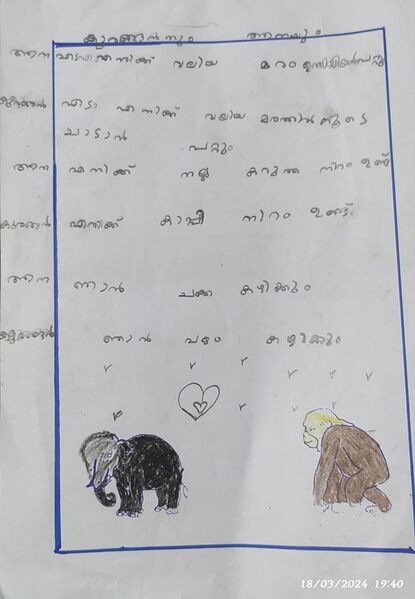 കുരങ്ങൻ നും ആനയും
ആന എടാ എനിക്ക് വലിയ മരം ഉന്തിയിടാൻ പറ്റും
കുരങ്ങൻ എടാ എനിക്ക് വലിയ മരത്തിൽ കൂടെ
ചാടാൻ പറ്റും
ആന എനിക്ക് നല്ല കറുത്ത നിറം ഉണ്ട്
കുരങ്ങൻ എനിക്ക് കാപ്പി നിറം ഉണ്ട്
ആന ഞാൻ ചക്ക കഴിക്കും
കുരങ്ങൻ ഞാൻ പഴം കഴിക്കും
18/03/2024 19:40